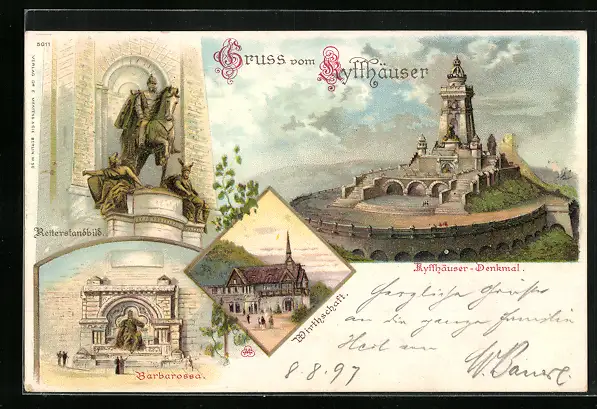 5611
Gruss vom Kyffhäuser
Reiterstandbild.
Kyffhäuser-Denkmal.
Wirthschaft.
Barbarossa.
Herzliche Grüsse
an die ganze Familie
8.8.97
W.